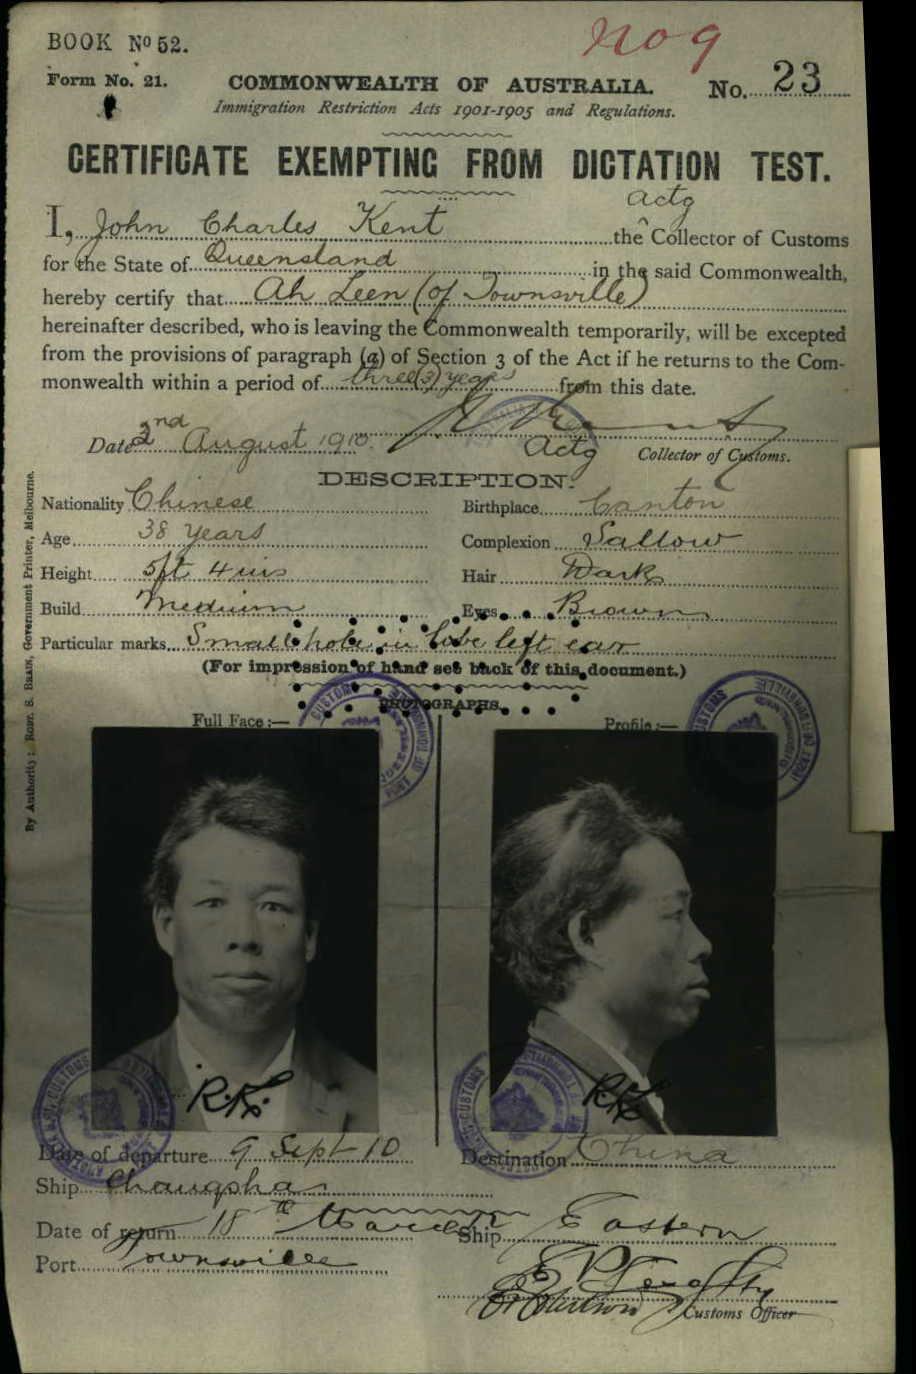 BOOK No 52.
No 9
Form No. 21.
COMMONWEALTH OF AUSTRALIA.
No. 23
Immigration Restriction Acts 1901-1905 and Regulations.
CERTIFICATE EXEMPTING FROM DICTATION TEST.
actg
I, John Charles Kent the Collector of Customs
for the State of Queensland in the said Commonwealth,
hereby certify that Ah Leen (of Townsville)
hereinafter described, who is leaving the Commonwealth temporarily, will be excepted
from the provisions of paragraph (a) of Section 3 of the Act if he returns to the Com-
monwealth within a period of three (3) years from this date.
Date 2nd August 1910.
Actg Collector of Customs.
DESCRIPTION.
Nationality Chinese Birthplace Canton
Age 38 years Complexion Sallow
Height 5ft 4 ins Hair Dark
Build Medium Eyes Brown
Particular marks Small hole in lobe left ear
(For impression of hand see back of this document.)
PHOTOGRAPHS.
Full Face :— Profile :—
By Authority: Robt. S. Brain, Government Printer, Melbourne.
CUSTOMS
PORT OF TOWNSVILLE
CUSTOMS
CUSTOMS
CUSTOMS
Date of departure 9 Sept 10 Destination China
Ship Changsha
Date of return 18th March 12 Ship Eastern
Port Townsville
Customs Officer